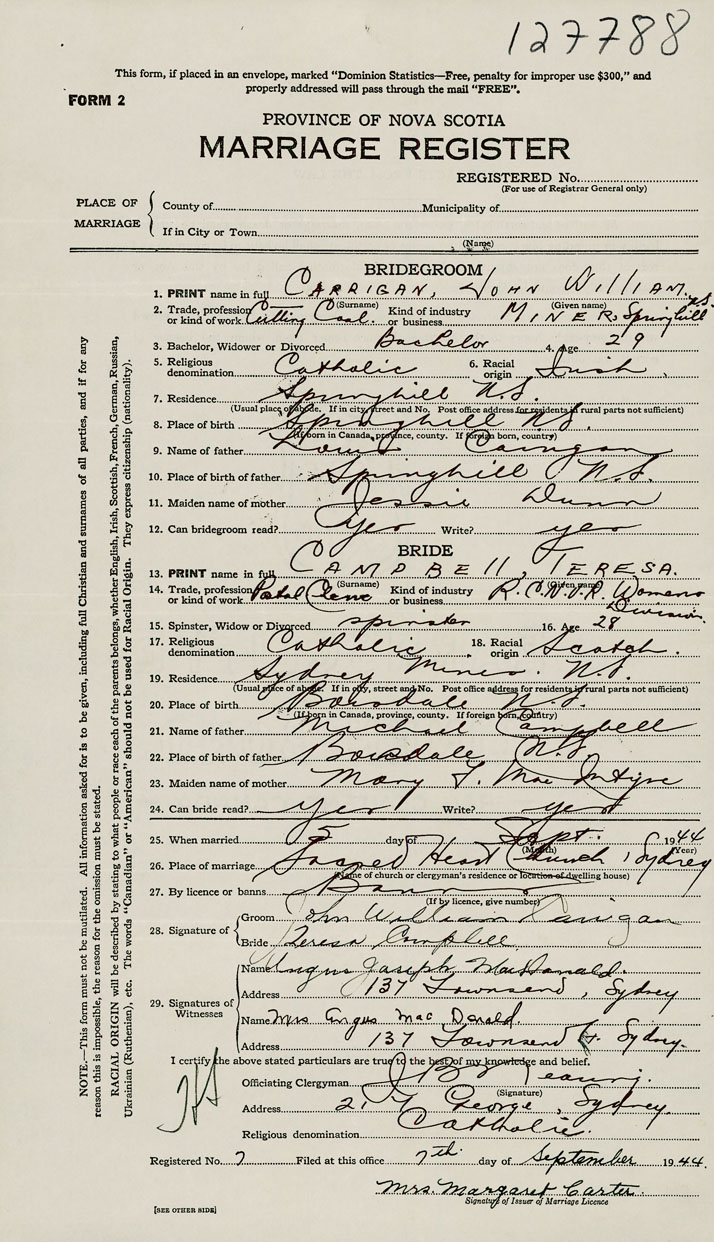 127788
This form, if placed in an envelope, marked "Dominion Statistics—Free, penalty for improper use $300," and
properly addressed will pass through the mail "FREE".
FORM 2
PROVINCE OF NOVA SCOTIA
MARRIAGE REGISTER
REGISTERED No.
(For use of Registrar General only)
PLACE OF MARRIAGE
County of Municipality of
If in City or Town
(Name)
BRIDEGROOM
1. PRINT name in full CARRIGAN, JOHN WILLIAM.
(Surname) (Given name)
2. Trade, profession or kind of work Cutting Coal. Kind of industry or business MINER, Springhill N.S.
3. Bachelor, Widower or Divorced Bachelor 4. Age 29
5. Religious denomination Catholic 6. Racial origin Irish
7. Residence Springhill N.S.
(Usual place of abode. If in city, street and No. Post office address for residents in rural parts not sufficient)
8. Place of birth Springhill N.S.
(If born in Canada, province, county. If foreign born, country)
9. Name of father Louis Carrigan
10. Place of birth of father Springhill N.S.
11. Maiden name of mother Jessie Dunn
12. Can bridegroom read? Yes Write? yes
BRIDE
13. PRINT name in full CAMPBELL, TERESA.
(Surname) (Given name)
14. Trade, profession or kind of work Postal Clerk Kind of industry or business R.C.N.V.R. Womens Division.
15. Spinster, Widow or Divorced spinster 16. Age 28
17. Religious denomination Catholic 18. Racial origin Scotch.
19. Residence Sydney Mines. N.S.
(Usual place of abode. If in city, street and No. Post office address for residents in rural parts not sufficient)
20. Place of birth Boisdale N.S.
(If born in Canada, province, county. If foreign born, country)
21. Name of father Michael Campbell
22. Place of birth of father Boisdale N.S.
23. Maiden name of mother Mary T. MacIntyre
24. Can bride read? yes Write? yes
25. When married 5 day of Sept. 1944
(Month) (Year)
26. Place of marriage Sacred Heart Church, Sydney
(Name of church or clergyman's residence or location of dwelling house)
27. By licence or banns Banns
(If by licence, give number)
28. Signature of
Groom John William Carrigan
Bride Teresa Campbell
29. Signatures of Witnesses
Name Angus Joseph MacDonald.
Address 137 Townsend, Sydney
Name Mrs Angus MacDonald.
Address 137 Townsend St. Sydney.
I certify the above stated particulars are true to the best of my knowledge and belief.
Officiating Clergyman
(Signature)
Address George, Sydney
Religious denomination Catholic.
Registered No. 7 Filed at this office 7th day of September 1944.
Mrs. Margaret Carter.
Signature of Issuer of Marriage Licence
[SEE OTHER SIDE]
NOTE.—This form must not be mutilated. All information asked for is to be given, including full Christian and surnames of all parties, and if for any
reason this is impossible, the reason for the omission must be stated.
RACIAL ORIGIN will be described by stating to what people or race each of the parents belongs, whether English, Irish, Scottish, French, German, Russian,
Ukrainian (Ruthenian), etc. The words "Canadian" or "American" should not be used for Racial Origin. They express citizenship (nationality).